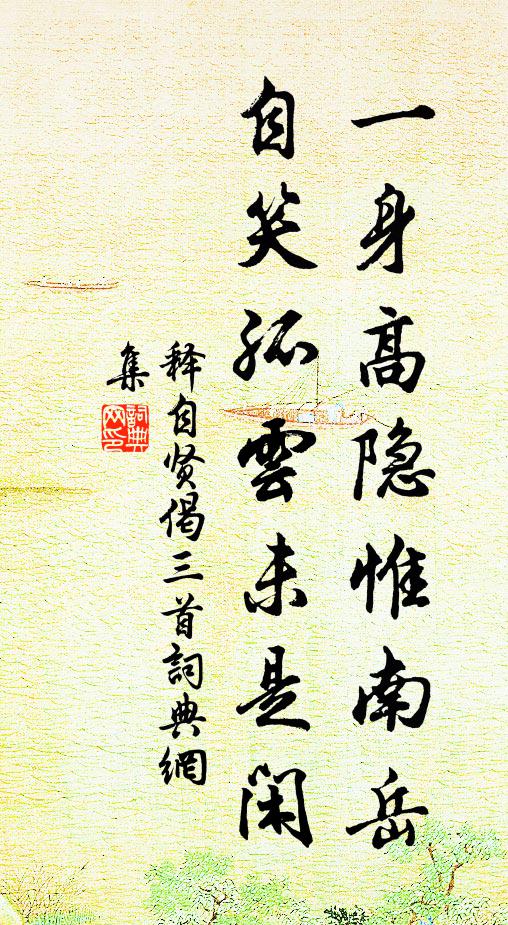 一身高隐惟南岳
自笑孤雲未是闲
释自贤偈三首詞典網
集
詞典網印